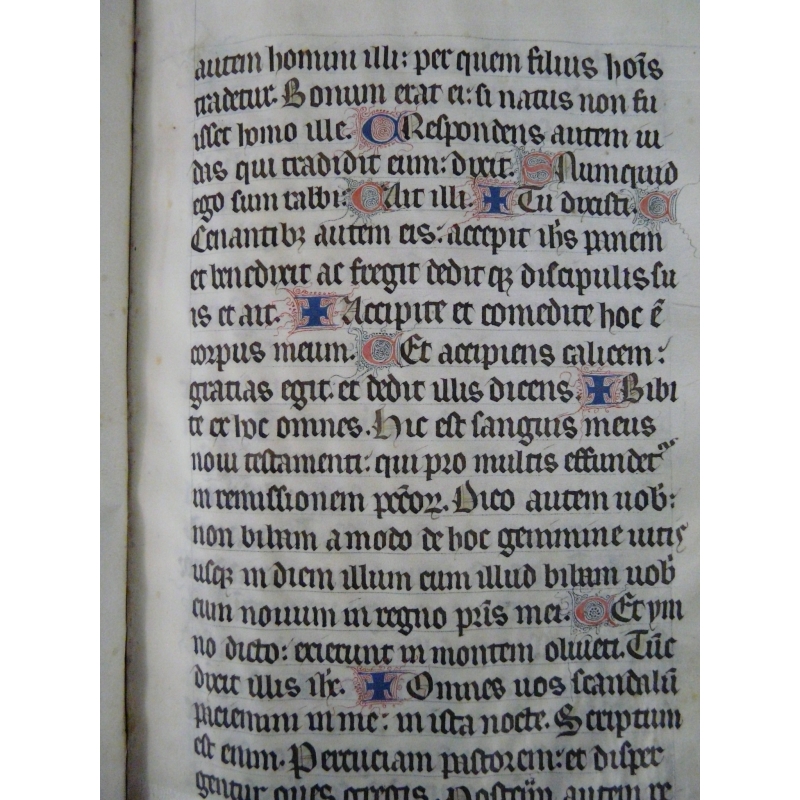 autem homini illi: per quem filius hoīs
tradetur. Bonum erat ei: si natus non fu
isset homo ille. C Respondens autem iu
das qui tradidit eum: dixit. S Numquid
ego sum rabbi: C Ait illi. ✠ Tu dixisti. C
Cenantibȝ autem eis: accepit ihs panem
et benedixit ac fregit dedit qȝ discipulis su
is et ait. ✠ Accipite et comedite hoc ē
corpus meum. C Et accipiens calicem:
gratias egit: et dedit illis dicens. ✠ Bibi
te ex hoc omnes. Hic est sanguis meus
noui testamenti: qui pro multis effundetᷣ
in remissionem pctōꝝ. Dico autem uob̄:
non bibam amodo de hoc gemmine uitis
usqȝ in diem illum cum illud bibam uob̄
cum nouum in regno pr̄is mei. C Et ym
no dicto: exierunt in montem oliueti. Tūc
dixit illis ihc. ✠ Omnes uos scandalū
paciemini in me: in ista nocte. Scriptum
est enim. Percuciam pastorem: et disper
gentur oues gregis. Postq̄m autem re